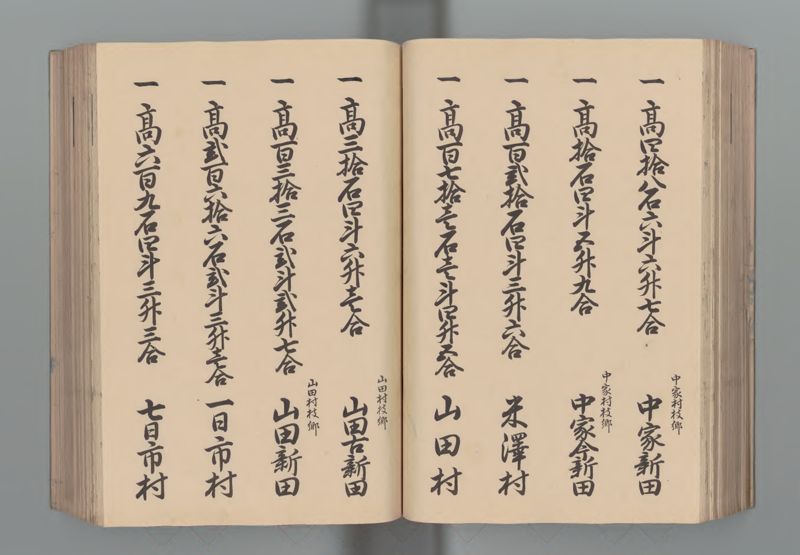 中家村枝郷
一 高四拾八石六斗六升七合 中家新田
中家村枝郷
一 高拾石四斗五升九合 中家今新田
一 高百弐拾石四斗三升六合 米澤村
一 高百七拾壱石壱斗四升五合 山田村
山田村枝郷
一 高三拾石四斗六升壱合 山田古新田
山田村枝郷
一 高百三拾三石弐斗弐升七合 山田新田
一 高弐百六拾六石弐斗三升壱合 一日市村
一 高六百九石四斗三升三合 七日市村